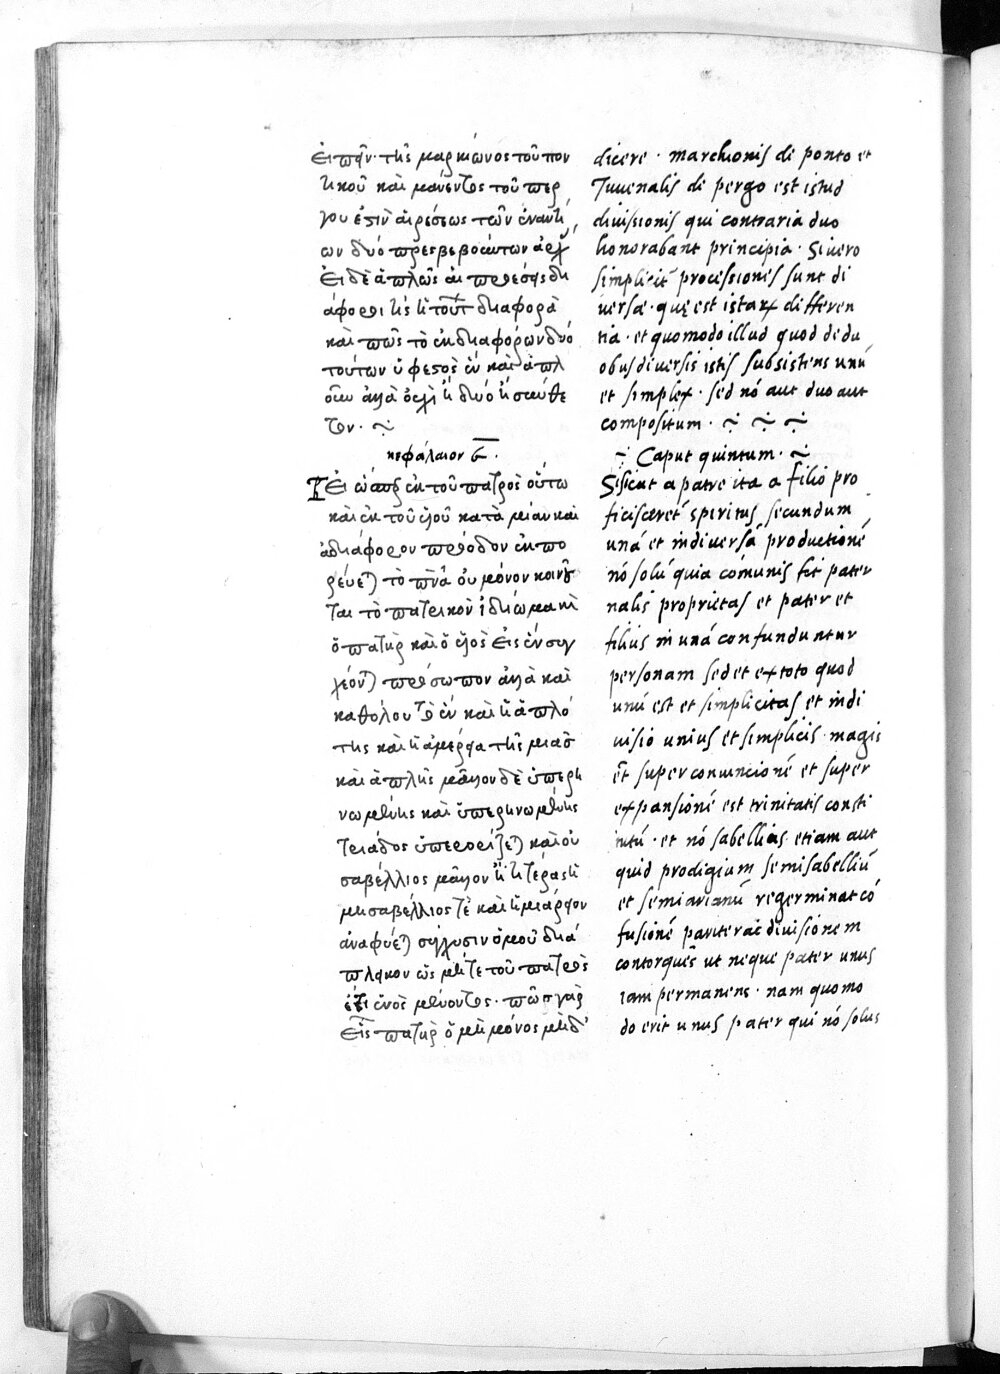 εἰπεῖν· τῆς μαρκιώνος τοῦ πον
τικοῦ καὶ μάνεντος τοῦ περ
γου ἐστὶν αἱρέσεως τῶν ἐναντί
ων δύο πρεσβεβοώντων ἀρχ
εἰ δὲ ἁπλῶς αἱ προέσεις δι
άφοροι τίς ἡ τούτ διαφορὰ
καὶ πῶς τὸ ἐκ διαφόρων δύο
τούτων ὑφεστὸς ἓν καὶ ἁπλ
οῦν ἀλλὰ οὐχὶ ἢ δύο ἢ σύνθε
τον·
κεφάλαιον ε·
Εἰ ὥσπερ ἐκ τοῦ πατρὸς οὕτω
καὶ ἐκ τοῦ υἱοῦ κατὰ μίαν καὶ
ἀδιάφορον πρόοδον ἐκπο
ρεύεται τὸ πνᾶ οὐ μόνον κοινοῦ
ται τὸ πατρικὸν ἰδίωμα καὶ
ὁ πατὴρ καὶ ὁ υἱὸς εἰς ἓν συγ
χέονται πρόσωπον ἀλλὰ καὶ
καθόλου τὸ ἓν καὶ ἡ ἁπλό
της καὶ ἡ ἀμέρεια τῆς μιᾶς
καὶ ἁπλῆς μᾶλλον δὲ ὑπερη
νωμένης καὶ ὑπερηνωμένης
τριάδος ὑπερορίζεται καὶ οὐ
σαβέλλιος μᾶλλον ἢ τι τέρας ἡ
μισαβέλλιος τὲ καὶ ἡμιάρειον
ἀναφύεται σύγχυσιν ὁμοῦ διά
πλεκον ὡς μήτε τοῦ πατρὸς
ἔτι ἑνὸς μένοντος· πῶς γὰρ
εἷς πατὴρ ὁ μὴ μόνος μηδ'
dicere · marchionis de ponto et
Juuenalis de pergo est istud
diuisionis qui contraria duo
honorabant principia · Si uero
simplicit' processionis sunt di
uersæ · quę est istarum differen
tia · et quomodo illud quod de du
obus diuersis istis subsistens unū
et simplex · sed nó aut duo aut
compositum ·
Caput quintum ·
Si sicut a patre ita a filio pro
ficisceret' spiritus secundum
unā et indiuersā productionē
nó solū quia cómunis fit pater
nalis proprietas et pater et
filius in unā confunduntur
personam sed et ex toto quod
unū est et simplicitas et indi
uisio unius et simplicis magis
ēt superconiuncionē et super
expansionē est trinitatis consti
tutū · et nó sabellius etiam aut
quid prodigium semisabelliū
et semiarianū regerminat có
fusionē pariter ac diuisionem
contorquēs ut neque pater unus
iam permanens · nam quomo
do erit unus pater qui nó solus